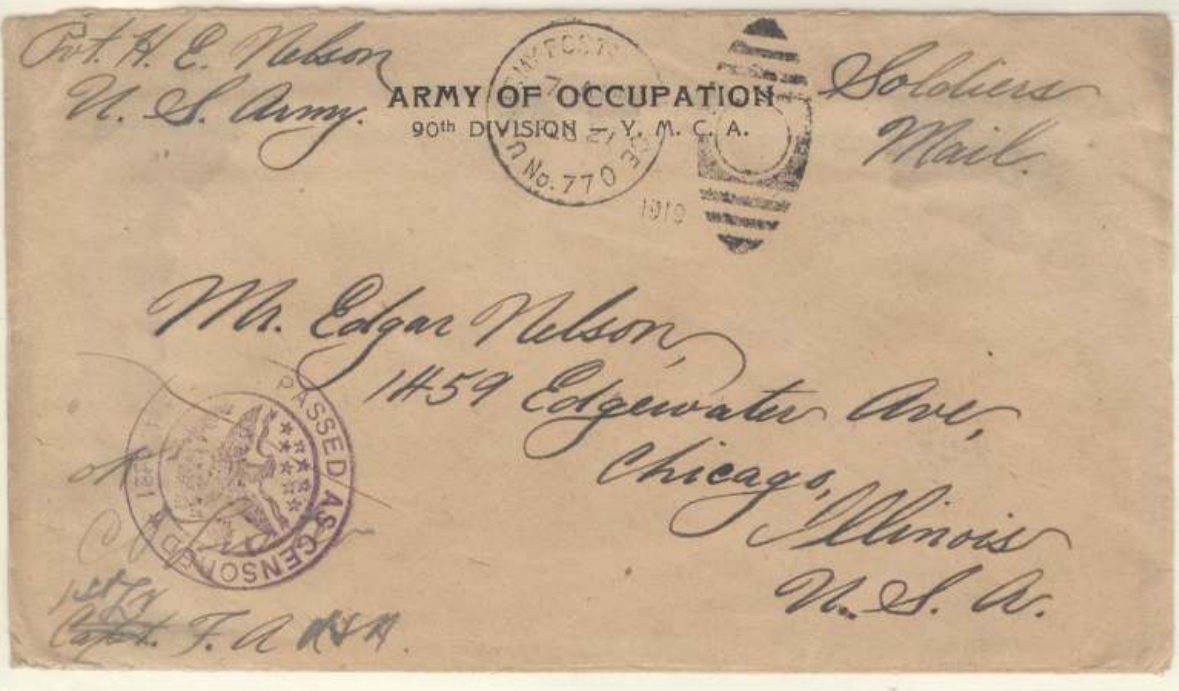 Pvt. H. E. Nelson
U. S. Army.
Soldiers
Mail.
ARMY OF OCCUPATION
90th DIVISION – Y. M. C. A.
No. 770
1919
Mr. Edgar Nelson,
1459 Edgewater Ave,
Chicago,
Illinois
U. S. A.
PASSED AS CENSORED
OK
1st Lt
Capt. F. A